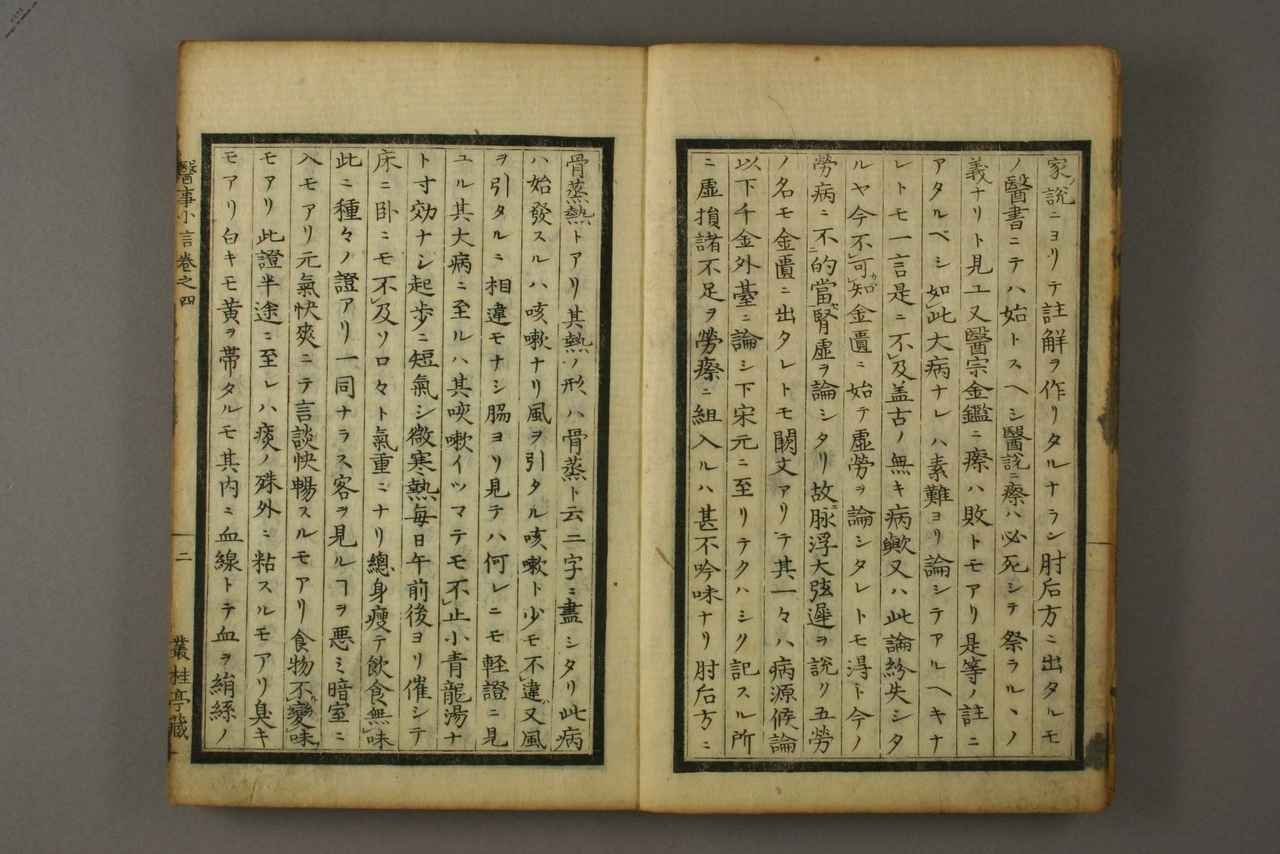 家説ニヨリテ註解ヲ作リタルナラン肘后方ニ出タルモ
ノ醫書ニテハ始トスヘシ醫説ニ瘵ハ必死シテ祭ラルヽノ
義ナリト見エ又醫宗金鑑ニ瘵ハ敗トモアリ是等ノ註ニ
アタルベシ如此大病ナレハ素難ヨリ論シテアルヘキナ
レトモ一言是ニ不及盖古ノ無キ病歟又ハ此論紛失シタ
ルヤ今不可知金匱ニ始テ虚勞ヲ論シタレトモ淂ト今ノ
勞病ニ不的當腎虚ヲ論シタリ故ニ脉浮大弦遲ヲ説リ五勞
ノ名モ金匱ニ出タレトモ闕文アリテ其一々ハ病源候論
以下千金外臺ニ論シ下宋元ニ至リテクハシク記スル所
ニ虚損諸不足ヲ勞瘵ニ組入ルハ甚不吟味ナリ肘后方ニ
骨蒸熱トアリ其熱ノ形ハ骨蒸ト云二字ニ盡シタリ此病
ハ始發スルハ咳嗽ナリ風ヲ引タル咳嗽ト少モ不違又風
ヲ引タルニ相違モナシ脇ヨリ見テハ何レニモ軽證ニ見
ユル其大病ニ至ルハ其咳嗽イツマテモ不止小青龍湯ナ
ト寸効ナシ起歩ニ短氣シ微寒熱毎日午前後ヨリ催シテ
床ニ卧ニモ不及ソロ々ト氣重ニナリ總身瘦テ飲食無味
此ニ種々ノ證アリ一同ナラス客ヲ見ルヿヲ悪ミ暗室ニ
入モアリ元氣快爽ニテ言談快暢スルモアリ食物不變味
モアリ此證半途ニ至レハ痰ノ殊外ニ粘スルモアリ臭キ
モアリ白キモ黄ヲ帯タルモ其内ニ血線トテ血ヲ絹絲ノ
醫事小言巻之四
二
叢桂亭藏